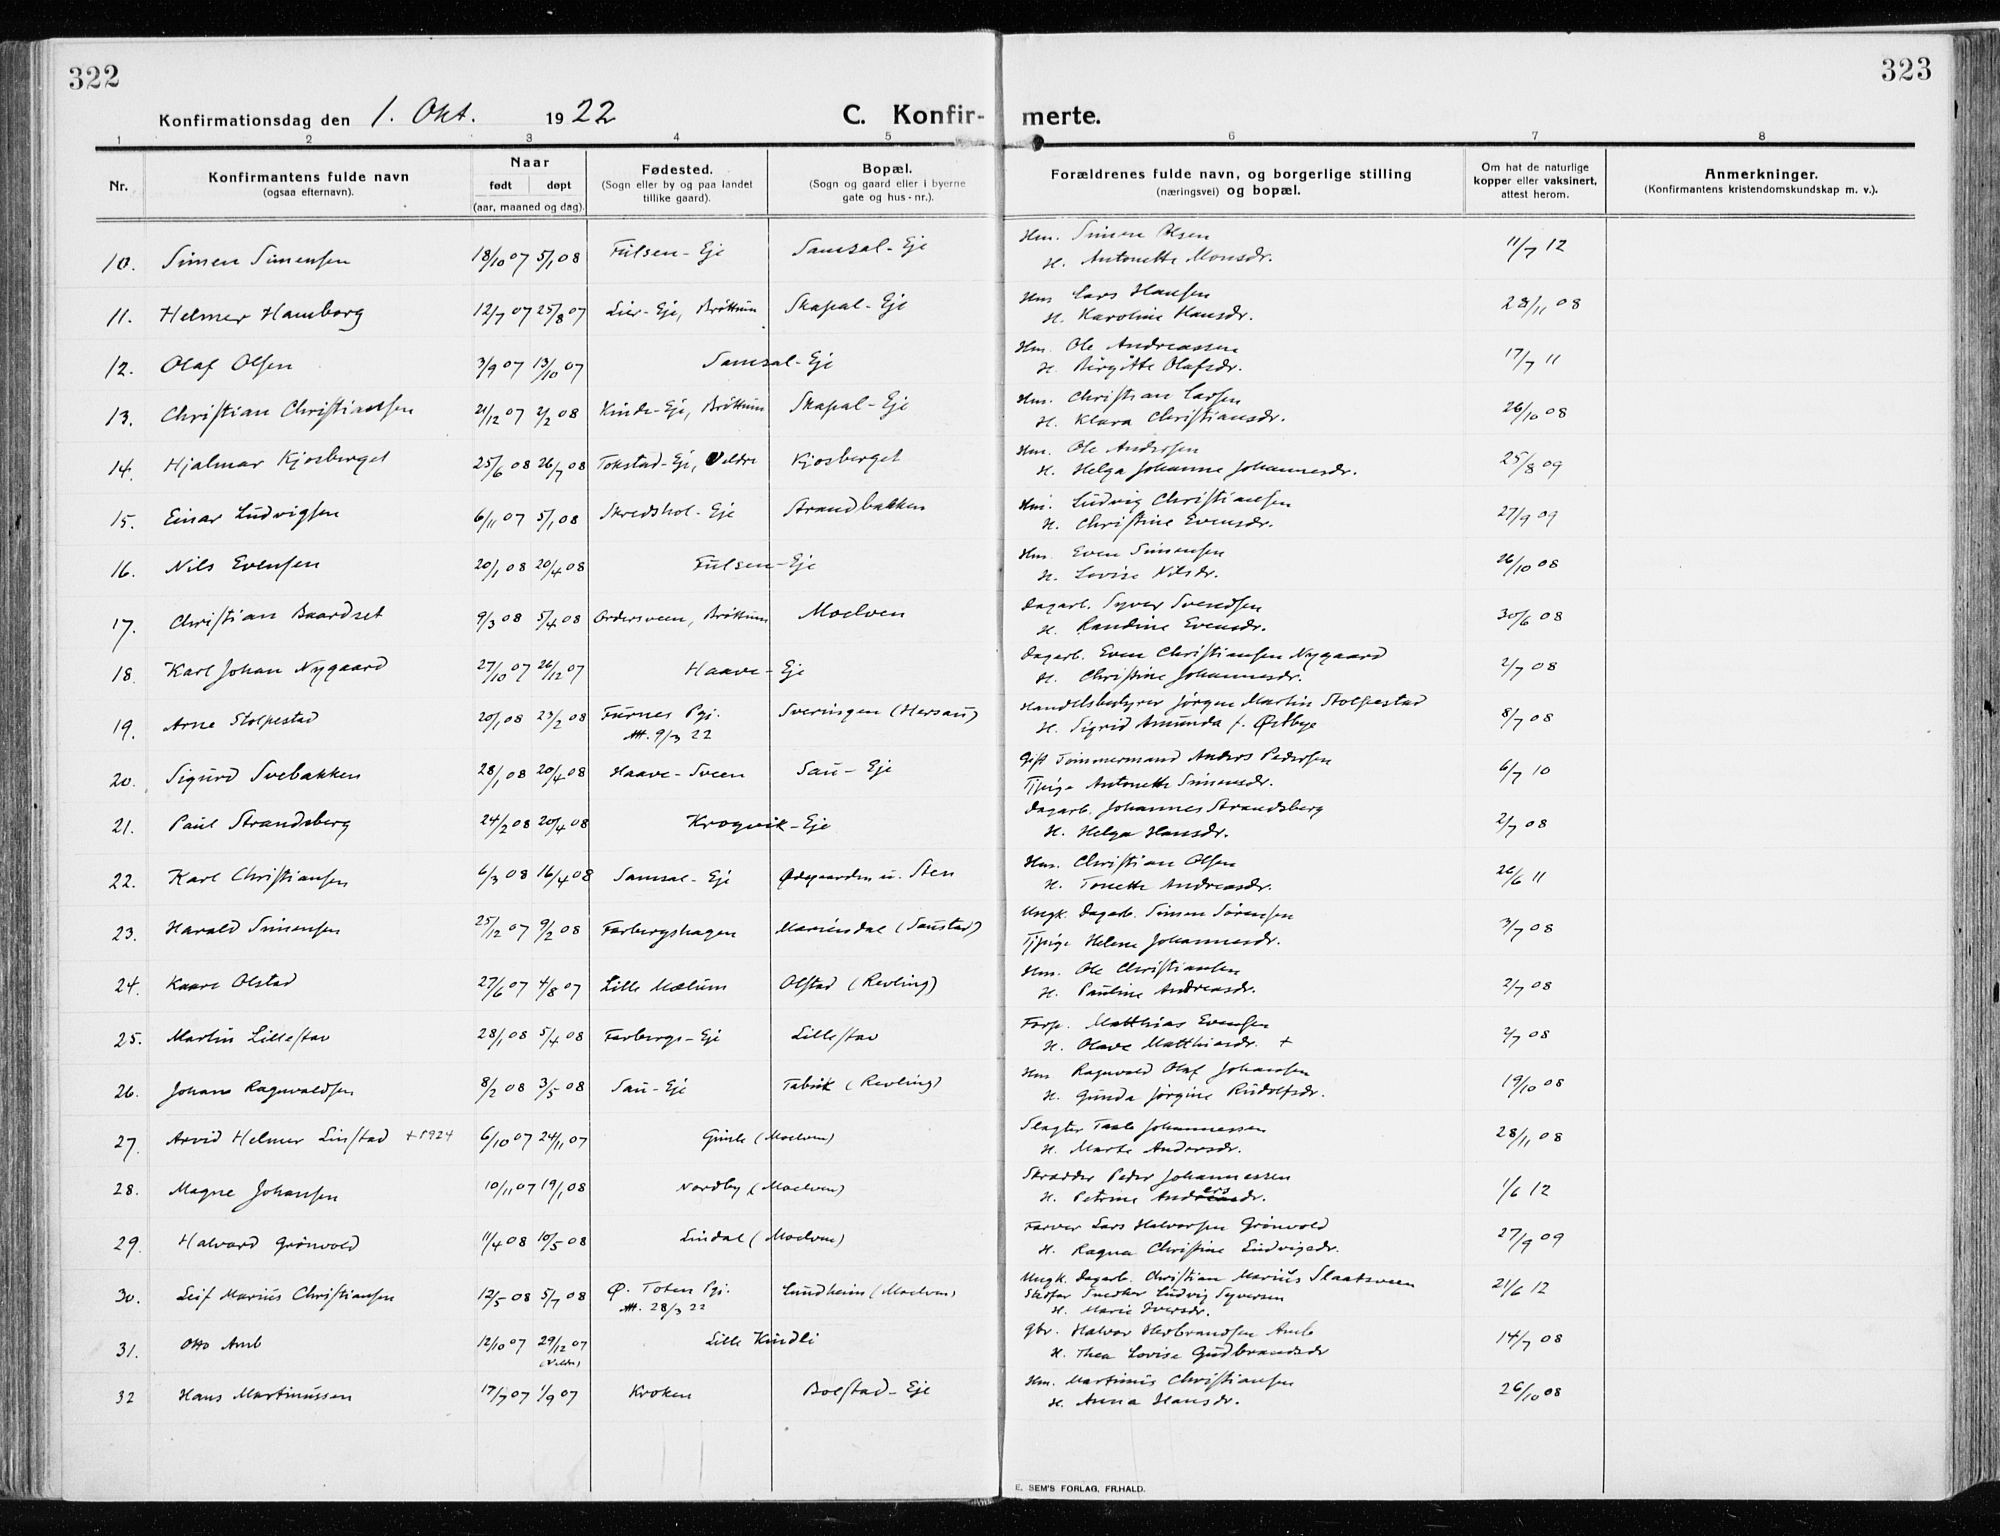 322
323
Konfirmationsdag den 1. Okt. 1922
C. Konfir- merte.
1 2 3 4 5 6 7 8
Nr.
Konfirmantens fulde navn
(ogsaa efternavn).
Naar
født døpt
(aar, maaned og dag).
Fødested.
(Sogn eller by og paa landet
tillike gaard).
Bopæl.
(Sogn og gaard eller i byerne
gate og hus-nr.).
Forældrenes fulde navn, og borgerlige stilling
(næringsvei) og bopæl.
Om hat de naturlige
kopper eller vaksinert,
attest herom.
Anmerkninger.
(Konfirmantens kristendomskundskap m. v.).
10. Simen Simensen 18/10 07 5/1 08 Fulsen-Eje Samsal-Eje Hm. Simen Olsen 11/7 12
H. Antonette Monsdr.
11. Helmer Hamborg 12/7 07 25/8 07 Lier-Eje, Brøttum Skapal-Eje Hm. Lars Hansen 28/11 08
H. Karoline Hansdr.
12. Olaf Olsen 3/9 07 13/10 07 Samsal-Eje Hm. Ole Andreassen 17/7 11
H. Birgitte Olafsdr.
13. Christian Christiansen 21/12 07 2/2 08 Kinde-Eje, Brøttum Skapal-Eje Hm. Christian Larsen 26/10 08
H. Klara Christiansdr.
14. Hjalmar Kjosberget 25/6 08 26/7 08 Tokstad-Eje, Veldre Kjosberget Hm. Ole Andersen 25/8 09
H. Helga Johanne Johannesdr.
15. Einar Ludvigsen 6/11 07 5/1 08 Skredshol-Eje Strandbakken Hm. Ludvig Christiansen 27/9 09
H. Christine Evensdr.
16. Nils Evensen 20/1 08 20/4 08 Fulsen-Eje Hm. Even Simensen 26/10 08
H. Lovise Nilsdr.
17. Christian Baardset 9/3 08 5/4 08 Ordersveen, Brøttum Moelven Dagarb. Syver Svendsen 30/6 08
H. Randine Evensdr.
18. Karl Johan Nygaard 27/10 07 26/12 07 Haave-Eje Dagarb. Even Christiansen Nygaard 2/7 08
H. Christine Johannesdr.
19. Arne Stolpestad 20/1 08 23/2 08 Furnes Pgj. Sveringen (Hersau) Handelsbestyrer Jørgen Martin Stolpestad 8/7 08
Att. 9/3 22 H. Sigrid Amunda f. Østbye
20. Sigurd Svebakken 28/1 08 20/4 08 Haave-Sveen Sau-Eje Gift Tømmermand Anders Pedersen 6/7 10
Tjpige Antonette Simensdr.
21. Paul Strandsberg 24/2 08 20/4 08 Krogvik-Eje Dagarb. Johannes Strandsberg 2/7 08
H. Helga Hansdr.
22. Karl Christiansen 6/3 08 16/4 08 Samsal-Eje Ødegaarden u. Sten Hm. Christian Olsen 26/6 11
H. Tonette Andreasdr.
23. Harald Simensen 25/12 07 9/2 08 Farbergshagen Mariendal (Saustad) Ungk. Dagarb. Simen Sørensen 3/7 08
Tjpige Helene Johannesdr.
24. Kaare Olstad 27/6 07 4/8 07 Lille Mælum Olstad (Revling) Hm. Ole Christiansen 2/7 08
H. Pauline Andreasdr.
25. Martin Lillestav 28/1 08 5/4 08 Farbergs-Eje Lillestav Forp. Matthias Evensen 2/7 08
H. Olave Matthiasdr. +
26. Johane Ragnvaldsen 8/2 08 3/5 08 Sau-Eje Fabrik (Revling) Hm Ragnvald Olaf Johansen 19/10 08
H. Gunda Jørgine Rudolfsdr.
27. Arvid Helmer Linstad + 1924 6/10 07 24/11 07 (Moelven) Slagter Johannessen 28/11 08
H. Marte Andersdr.
28. Magne Johansen 10/11 07 19/1 08 Nordby (Moelven) Skrædder Peder Johannessen 1/6 12
H. Petrine Andersdr.
29. Halvard Grønvold 11/4 08 10/5 08 Lindal (Moelven) Farver Lars Halvorsen Grønvold 27/9 09
H. Ragna Christine Ludvigsdr.
30. Leif Marius Christiansen 12/5 08 5/7 08 Ø. Toten Pgj. Lundheim (Moelven) Ungk. Dagarb. Christian Marius Slaatsveen 21/6 12
Att. 28/3 22 Stedfar Snedker Ludvig Syversen
H. Marie Iversdr.
31. Otto Amb 12/10 07 29/12 07 Lille Kindli Gbr. Halvor Herbrandsen Amb 14/7 08
(Veldre) H. Thea Lovise Gudbrandsdr
32 Hans Martinussen 17/7 07 1/9 07 Kroken Bolstad-Eje Hm. Martinus Christiansen 26/10 08
H. Anna Hansdr.
E. SEM'S FORLAG, FR.HALD.